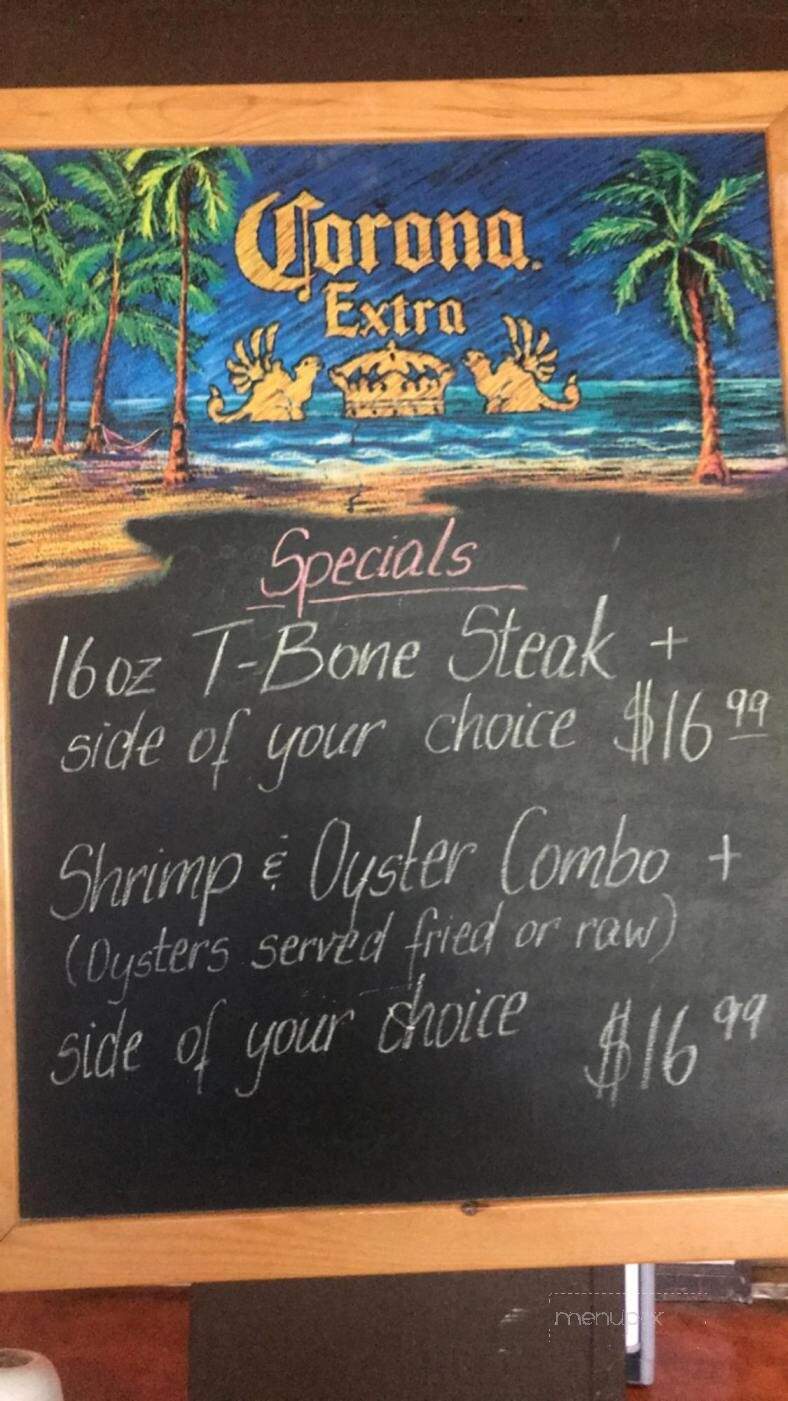 Corona.
Extra
Specials
16oz T-Bone Steak +
side of your choice $16 99
Shrimp & Oyster Combo +
(Oysters served fried or raw)
side of your choice $16 99
menupix